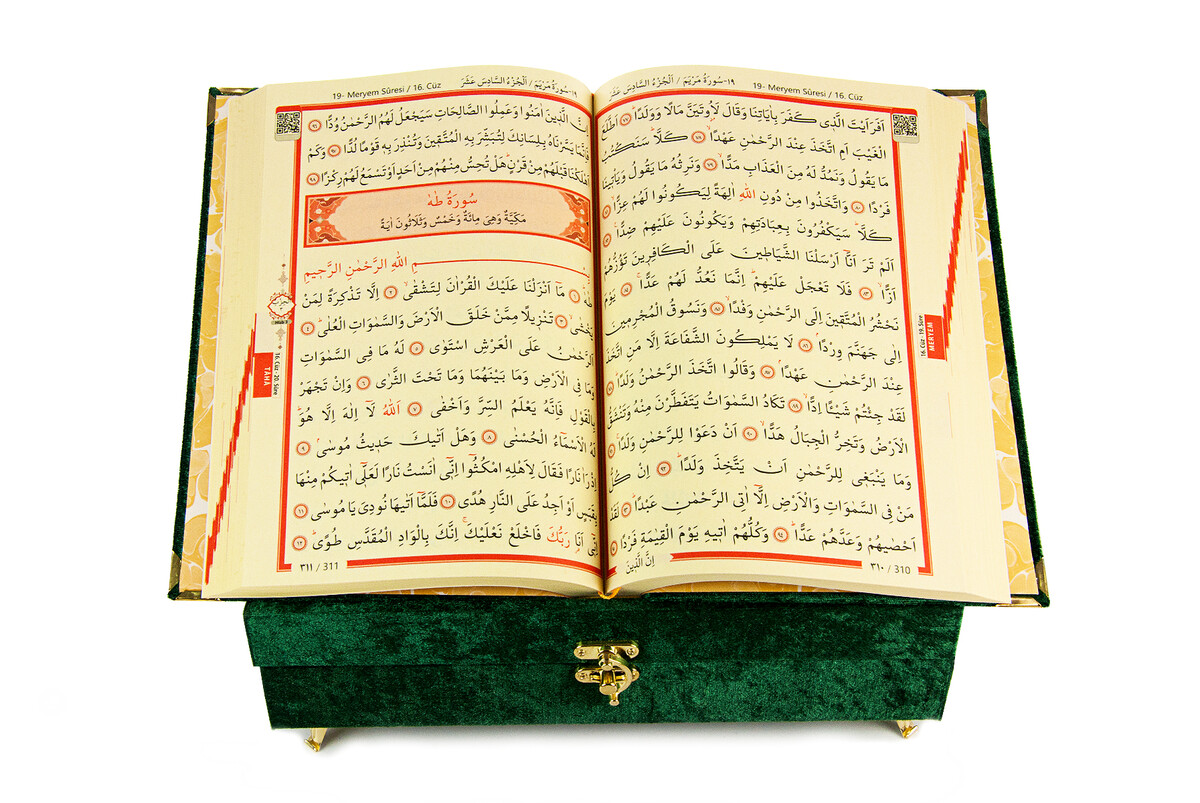 ١٩-سُورَةُ مَرْيَمَ / اَلْجُزْءُ السَّادِسَ عَشَرَ
19- Meryem Sûresi / 16. Cüz
اَفَرَاَيْتَ الَّذ۪ي كَفَرَ بِاٰيَاتِنَا وَقَالَ لَاُو۫تَيَنَّ مَالًا وَوَلَدًاۜ ﴿٧٧﴾ اَطَّلَعَ
الْغَيْبَ اَمِ اتَّخَذَ عِنْدَ الرَّحْمٰنِ عَهْدًاۙ ﴿٧٨﴾ كَلَّاۜ سَنَكْتُبُ
مَا يَقُولُ وَنَمُدُّ لَهُ مِنَ الْعَذَابِ مَدًّاۙ ﴿٧٩﴾ وَنَرِثُهُ مَا يَقُولُ وَيَأْت۪ينَا
فَرْدًا ﴿٨٠﴾ وَاتَّخَذُوا مِنْ دُونِ اللّٰهِ اٰلِهَةً لِيَكُونُوا لَهُمْ عِزًّاۙ ﴿٨١﴾
كَلَّاۜ سَيَكْفُرُونَ بِعِبَادَتِهِمْ وَيَكُونُونَ عَلَيْهِمْ ضِدًّا۟ ﴿٨٢﴾
اَلَمْ تَرَ اَنَّٓا اَرْسَلْنَا الشَّيَاط۪ينَ عَلَى الْكَافِر۪ينَ تَؤُزُّهُمْ
اَزًّاۙ ﴿٨٣﴾ فَلَا تَعْجَلْ عَلَيْهِمْۜ اِنَّمَا نَعُدُّ لَهُمْ عَدًّاۚ ﴿٨٤﴾ يَوْمَ
نَحْشُرُ الْمُتَّق۪ينَ اِلَى الرَّحْمٰنِ وَفْدًاۙ ﴿٨٥﴾ وَنَسُوقُ الْمُجْرِم۪ينَ
اِلٰى جَهَنَّمَ وِرْدًاۢ ﴿٨٦﴾ لَا يَمْلِكُونَ الشَّفَاعَةَ اِلَّا مَنِ اتَّخَذَ
عِنْدَ الرَّحْمٰنِ عَهْدًاۢ ﴿٨٧﴾ وَقَالُوا اتَّخَذَ الرَّحْمٰنُ وَلَدًاۜ ﴿٨٨﴾
لَقَدْ جِئْتُمْ شَيْـًٔا اِدًّاۙ ﴿٨٩﴾ تَكَادُ السَّمٰوَاتُ يَتَفَطَّرْنَ مِنْهُ وَتَنْشَقُّ
الْاَرْضُ وَتَخِرُّ الْجِبَالُ هَدًّاۙ ﴿٩٠﴾ اَنْ دَعَوْا لِلرَّحْمٰنِ وَلَدًاۚ ﴿٩١﴾
وَمَا يَنْبَغ۪ي لِلرَّحْمٰنِ اَنْ يَتَّخِذَ وَلَدًاۜ ﴿٩٢﴾ اِنْ كُلُّ
مَنْ فِي السَّمٰوَاتِ وَالْاَرْضِ اِلَّٓا اٰتِي الرَّحْمٰنِ عَبْدًاۜ ﴿٩٣﴾ لَقَدْ
اَحْصٰيهُمْ وَعَدَّهُمْ عَدًّاۜ ﴿٩٤﴾ وَكُلُّهُمْ اٰت۪يهِ يَوْمَ الْقِيٰمَةِ فَرْدًا ﴿٩٥﴾
اِنَّ الَّذ۪ينَ
٣١٠ / 310
16. Cüz - 19. Sûre
MERYEM
١٩-سُورَةُ مَرْيَمَ / اَلْجُزْءُ السَّادِسَ عَشَرَ
19- Meryem Sûresi / 16. Cüz
اِنَّ الَّذ۪ينَ اٰمَنُوا وَعَمِلُوا الصَّالِحَاتِ سَيَجْعَلُ لَهُمُ الرَّحْمٰنُ وُدًّا ﴿٩٦﴾
فَاِنَّمَا يَسَّرْنَاهُ بِلِسَانِكَ لِتُبَشِّرَ بِهِ الْمُتَّق۪ينَ وَتُنْذِرَ بِه۪ قَوْمًا لُدًّا ﴿٩٧﴾ وَكَمْ
اَهْلَكْنَا قَبْلَهُمْ مِنْ قَرْنٍۜ هَلْ تُحِسُّ مِنْهُمْ مِنْ اَحَدٍ اَوْ تَسْمَعُ لَهُمْ رِكْزًا ﴿٩٨﴾
سُورَةُ طٰهٰ
مَكِّيَّةٌ وَهِيَ مِائَةٌ وَخَمْسٌ وَثَلَاثُونَ اٰيَةً
بِسْمِ اللّٰهِ الرَّحْمٰنِ الرَّح۪يمِ
طٰهٰۜ ﴿١﴾ مَٓا اَنْزَلْنَا عَلَيْكَ الْقُرْاٰنَ لِتَشْقٰىۙ ﴿٢﴾ اِلَّا تَذْكِرَةً لِمَنْ
يَخْشٰىۙ ﴿٣﴾ تَنْز۪يلًا مِمَّنْ خَلَقَ الْاَرْضَ وَالسَّمٰوَاتِ الْعُلٰىۜ ﴿٤﴾
اَلرَّحْمٰنُ عَلَى الْعَرْشِ اسْتَوٰى ﴿٥﴾ لَهُ مَا فِي السَّمٰوَاتِ
وَمَا فِي الْاَرْضِ وَمَا بَيْنَهُمَا وَمَا تَحْتَ الثَّرٰى ﴿٦﴾ وَاِنْ تَجْهَرْ
بِالْقَوْلِ فَاِنَّهُ يَعْلَمُ السِّرَّ وَاَخْفٰى ﴿٧﴾ اَللّٰهُ لَٓا اِلٰهَ اِلَّا هُوَۜ
لَهُ الْاَسْمَٓاءُ الْحُسْنٰى ﴿٨﴾ وَهَلْ اَتٰيكَ حَد۪يثُ مُوسٰىۢ ﴿٩﴾
اِذْ رَاٰ نَارًا فَقَالَ لِاَهْلِهِ امْكُثُٓوا اِنّ۪ٓي اٰنَسْتُ نَارًا لَعَلّ۪ٓي اٰت۪يكُمْ مِنْهَا
بِقَبَسٍ اَوْ اَجِدُ عَلَى النَّارِ هُدًى ﴿١٠﴾ فَلَمَّٓا اَتٰيهَا نُودِيَ يَا مُوسٰىۜ ﴿١١﴾
اِنّ۪ٓي اَنَا۬ رَبُّكَ فَاخْلَعْ نَعْلَيْكَۚ اِنَّكَ بِالْوَادِ الْمُقَدَّسِ طُوًىۜ ﴿١٢﴾
٣١١ / 311
16. Cüz - 20. Sûre
TÂHÂ